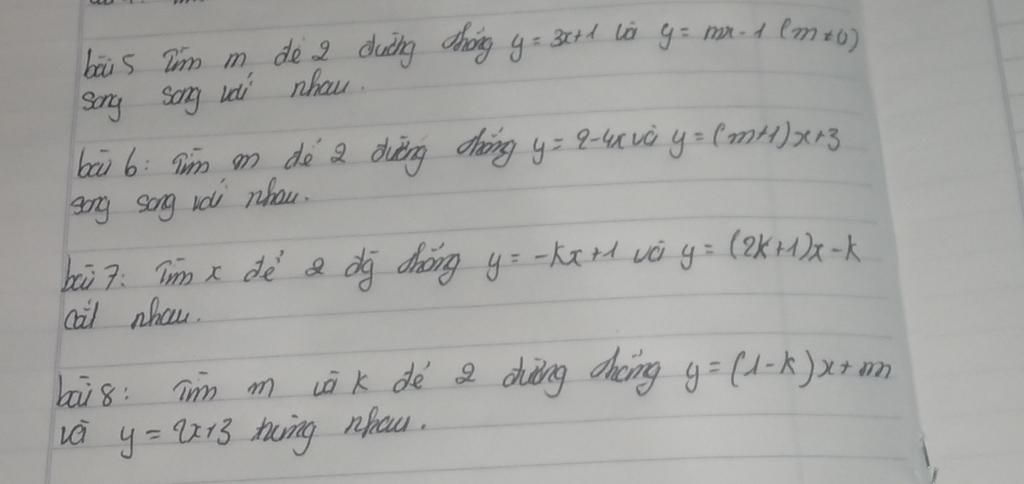 bài 5 Tìm m để 2 đường thẳng y = 3x+1 và y = mx-1 (m≠0)
song song với nhau.
bài 6: Tìm m để 2 đường thẳng y = 2-4x và y = (m+1)x+3
song song với nhau.
bài 7: Tìm x để 2 đg thẳng y = -kx+1 và y = (2k+1)x-k
cắt nhau.
bài 8: Tìm m và k để 2 đường thẳng y = (1-k)x+m
và y = 2x+3 trùng nhau.